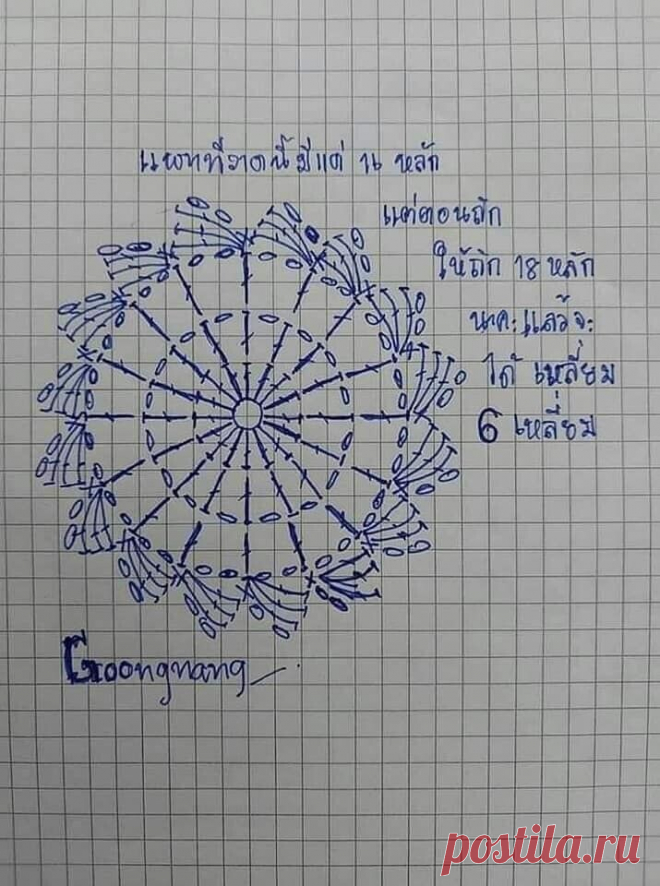 แพทที่วาดนี้มีแค่ 16 หลัก
แต่ตอนถัก
ให้ถัก 18 หลัก
นะคะแล้วจะ
ได้ เหลี่ยม
6 เหลี่ยม
Goongnang
postila.ru